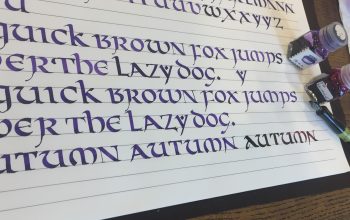 uvwxyyz
quick brown fox jumps
over the lazy dog. y
quick brown fox jumps
over the lazy dog.
autumn autumn autumn